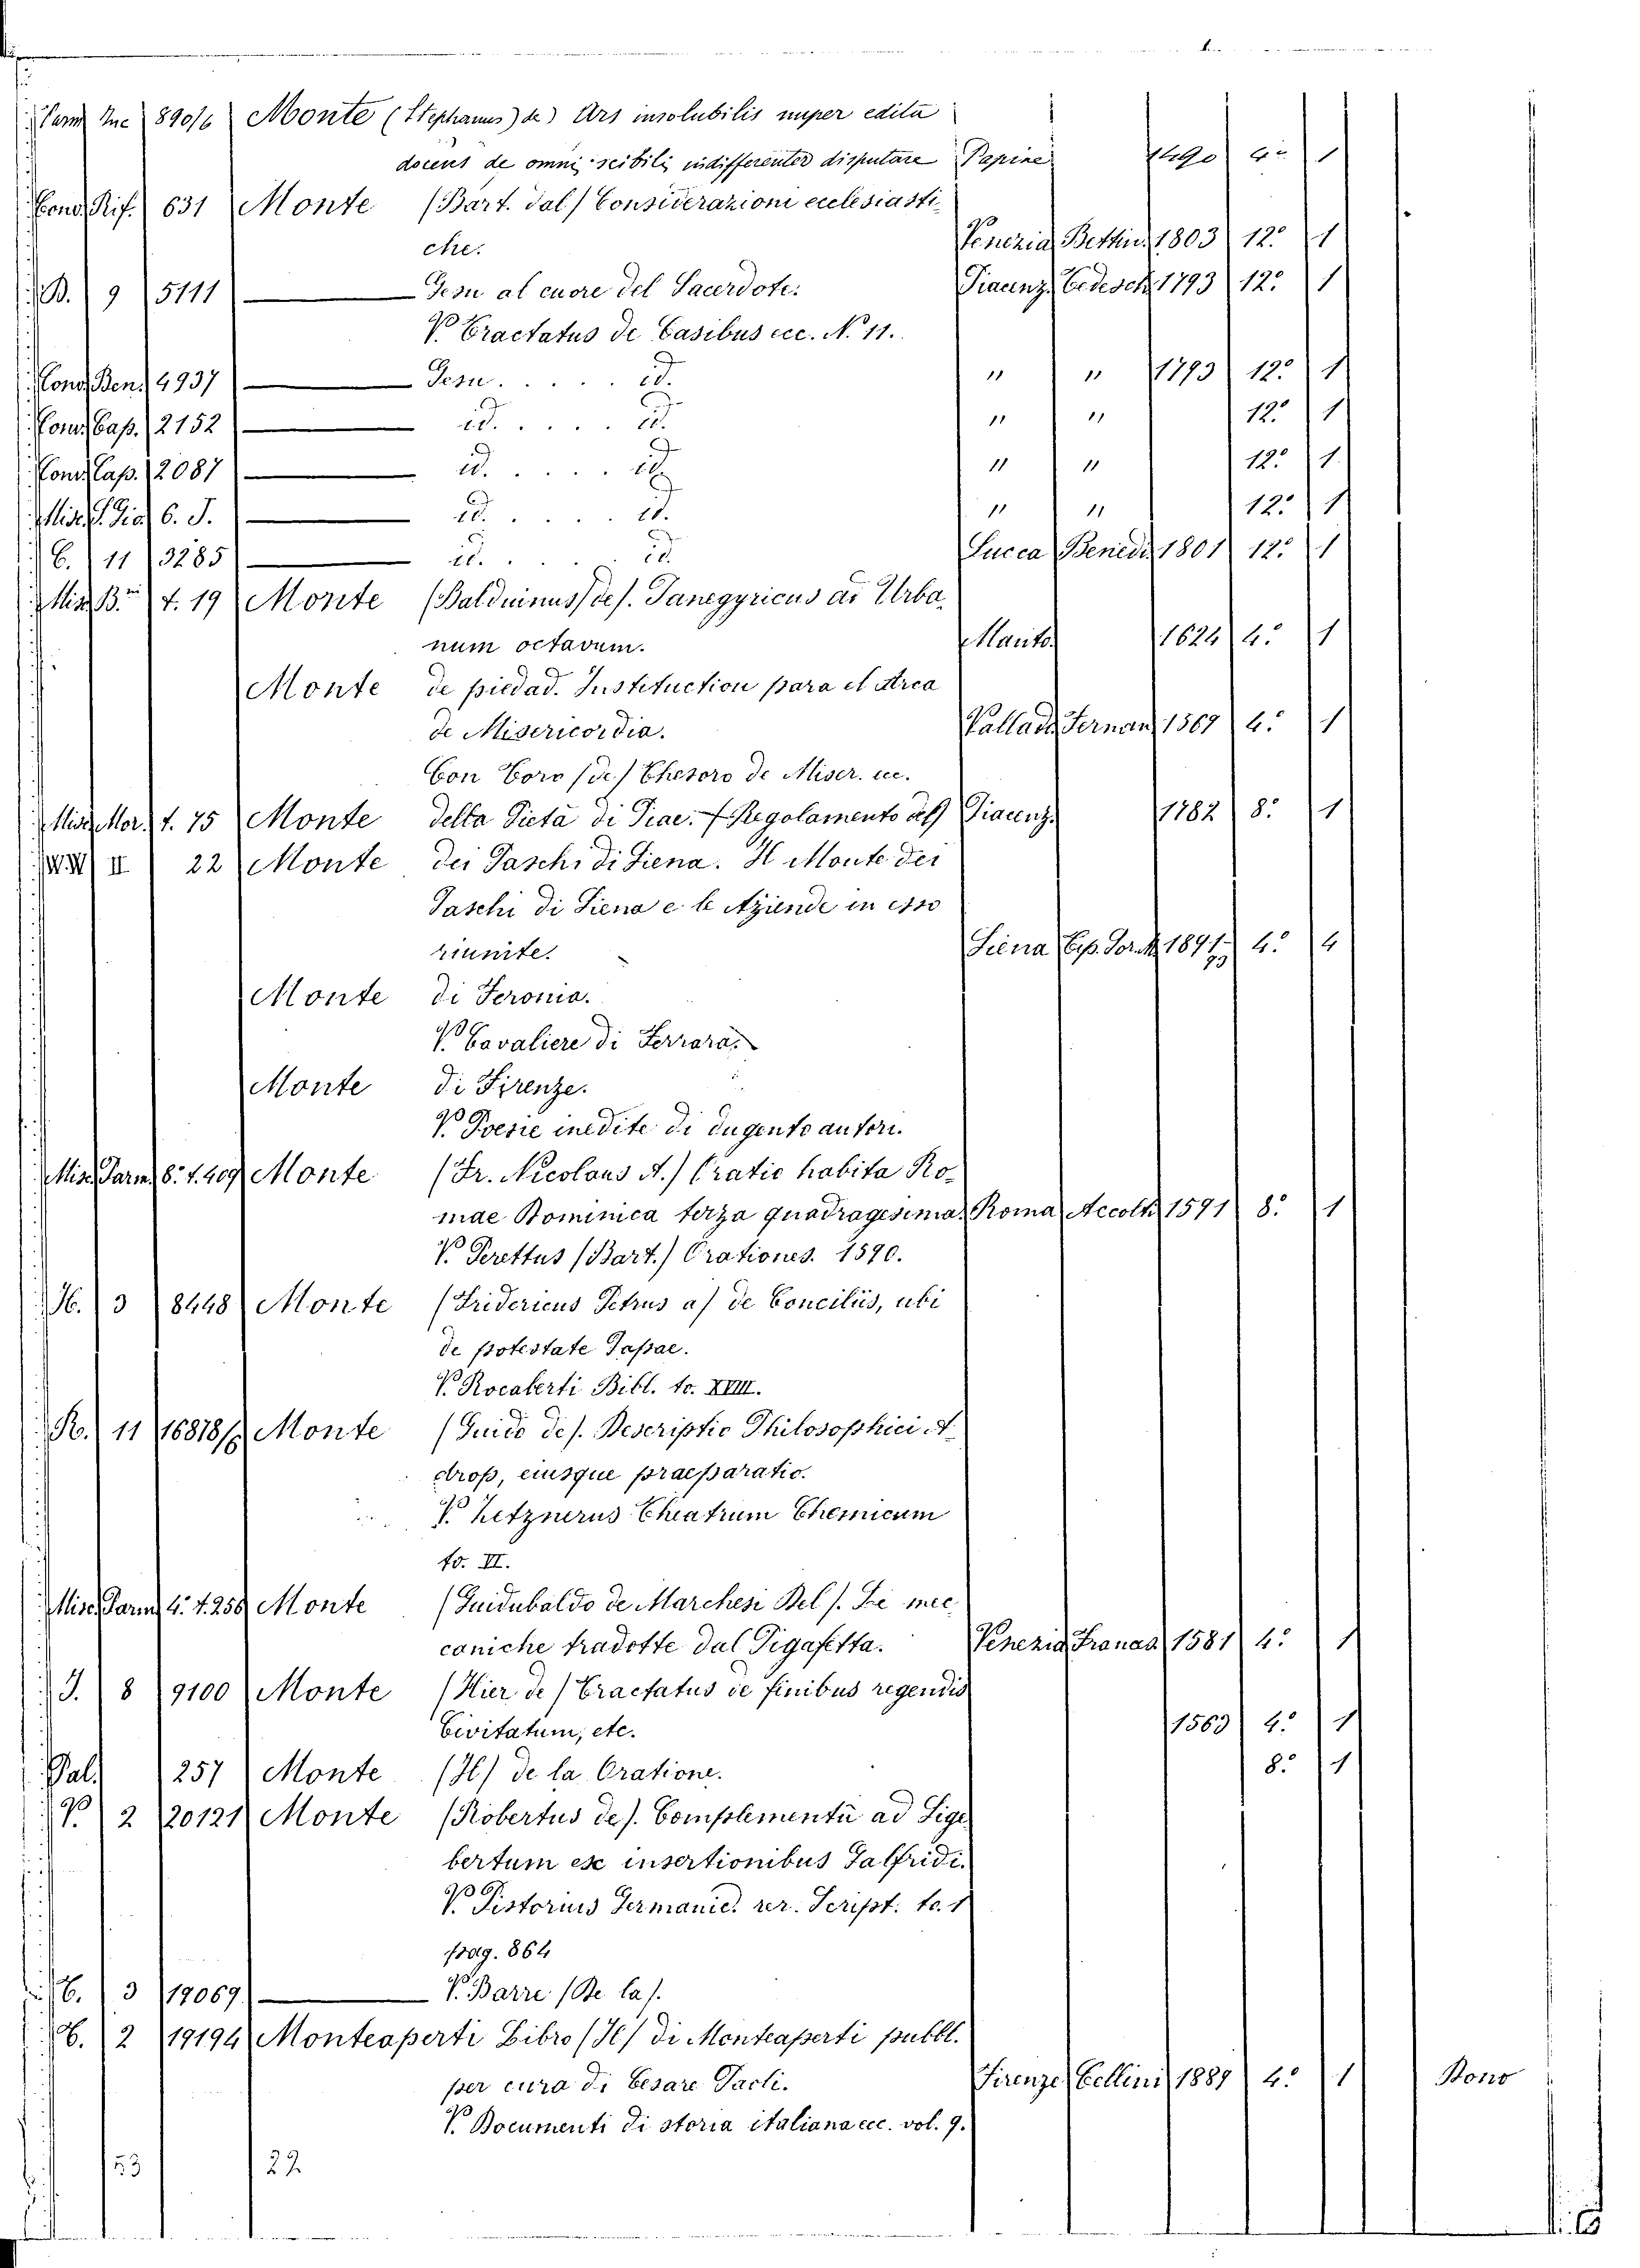 Parm Inc 890/6 Monte (Stephanus) de) Ars insolubilis nuper edita
docens de omni scibili indifferenter disputare Papine 1490 4º 1
Cond. Rif. 631 Monte (Bart. dal) Considerazioni ecclesiasti-
che. Venezia Bettin. 1803 12º 1
B. 9 5111 — Gesu al cuore del Sacerdote. Piacenz. Tedesch. 1793 12º 1
V. Tractatus de Casibus ecc. N. 11.
Cond. Ben. 4937 — Gesu. . . . . id. " " 1793 12º 1
Conv. Cap. 2152 — id. . . . . id. " " 12º 1
Conv. Cap. 2087 — id. . . . . id. " " 12º 1
Misc. S. Gio. 6. J. — id. . . . . id. " " 12º 1
C. 11 3285 — id. . . . . id. Lucca Bened. 1801 12º 1
Mis. B.ni t. 19 Monte (Balduinus) de). Panegyricus ad Urba-
num octavum. Manto. 1624 4º 1
Monte de piedad. Institution para el Arca
de Misericordia. Vallad. Fernan. 1569 4º 1
Con Toro (de) Thesoro de Miser. ec.
Misc. Mor. t. 75 Monte della Pietà di Piac. (Regolamento del) Piacenz. 1782 8º 1
W.W. II 22 Monte dei Paschi di Siena. Il Monte dei
Paschi di Siena e le Aziende in esso
riunite. Siena Tip. Sord. M. 1891-93 4º 4
Monte di Feronia.
V. Cavaliere di Ferrara.
Monte di Firenze.
V. Poesie inedite di dugento autori.
Misc. Parm. 8º t. 409 Monte (Fr. Nicolaus A.) Oratio habita Ro-
mae Dominica terza quadragesima. Roma Accolt. 1591 8º 1
V. Perettus (Bart.) Orationes. 1590.
H. 3 8448 Monte (Fridericus Petrus a) de Conciliis, ubi
de potestate Papae.
V. Rocaberti Bibl. to. XVIII.
R. 11 16878/6 Monte (Guido de). Descriptio Philosophici A-
drop, eiusque praeparatio.
V. Zetznerus Theatrum Chemicum
to. VI.
Misc. Parm. 4º t. 256 Monte (Guidubaldo de Marchesi Del). Le mec-
caniche tradotte dal Pigafetta. Venezia Franas. 1581 4º 1
J. 8 9100 Monte (Hier. de) Tractatus de finibus regendis
Civitatum, etc. 1563 4º 1
Pal. 257 Monte (Il) de la Oratione. 8º 1
V. 2 20121 Monte (Robertus de). Complementū ad Sige-
bertum ex insertionibus Galfridi.
V. Pistorius Germanic. rer. Script. to. 1
pag. 864
C. 3 19069 — V. Barre (De la).
C. 2 19194 Monteaperti Libro (Il) di Monteaperti pubbl.
per cura di Cesare Paoli. Firenze Cellini 1889 4º 1 Dono
V. Documenti di storia italiana ecc. vol. 9.
53 22